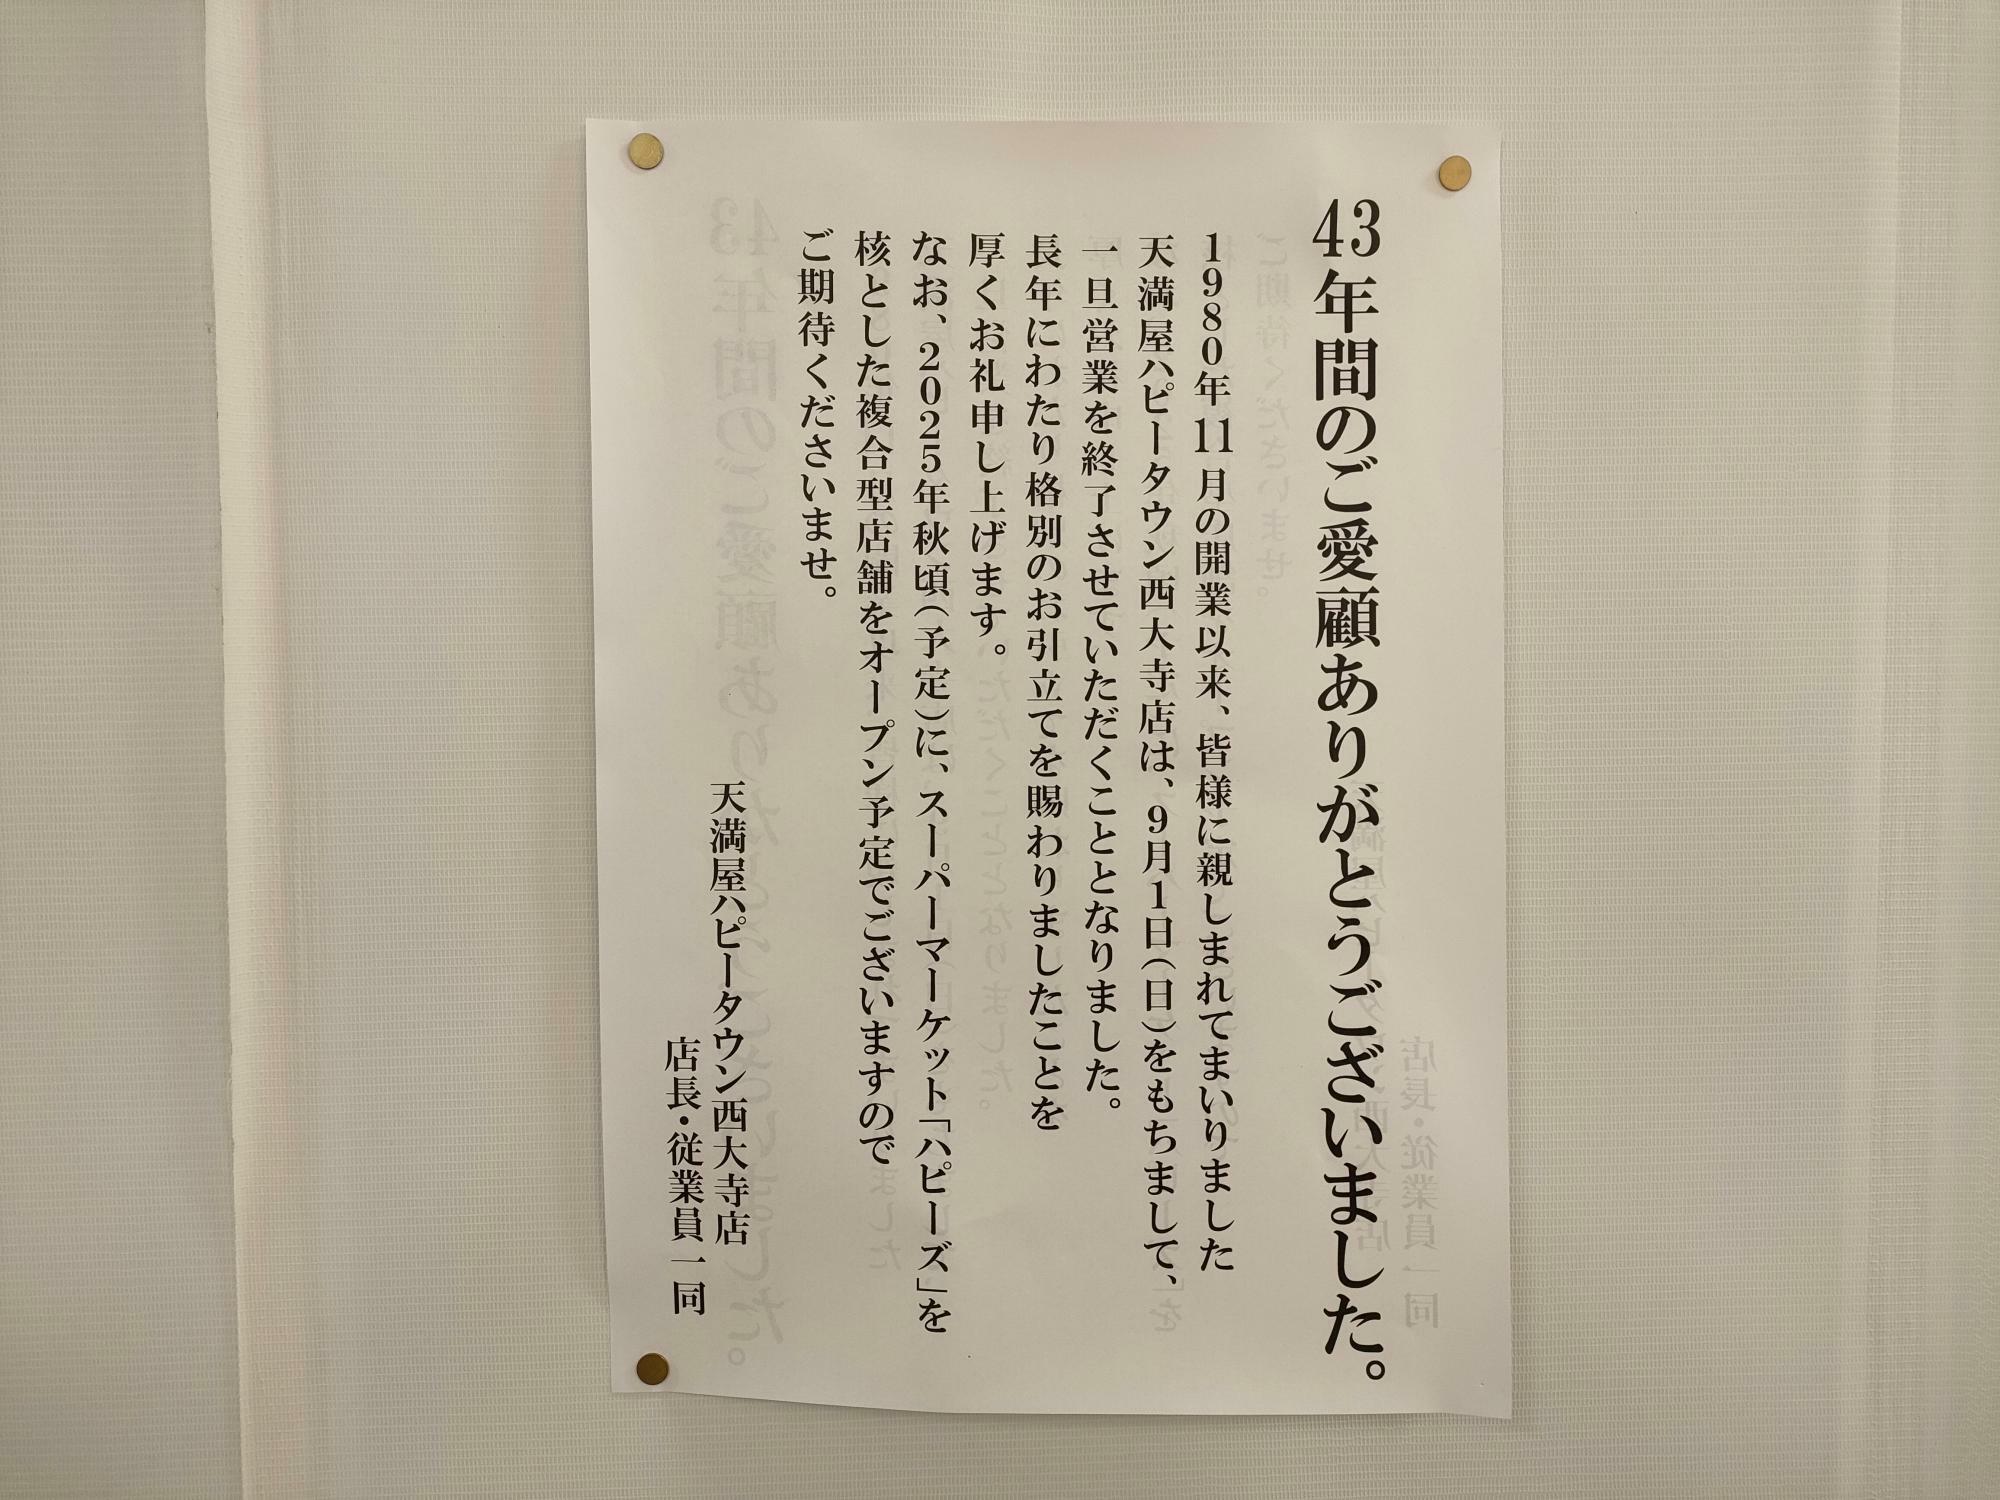 43年間のご愛顧ありがとうございました。
1980年11月の開業以来、皆様に親しまれてまいりました
天満屋ハピータウン西大寺店は、9月1日(日)をもちまして、
一旦営業を終了させていただくこととなりました。
長年にわたり格別のお引立てを賜わりましたことを
厚くお礼申し上げます。
なお、2025年秋頃(予定)に、スーパーマーケット「ハピーズ」を
核とした複合型店舗をオープン予定でございますので
ご期待くださいませ。
天満屋ハピータウン西大寺店
店長・従業員一同